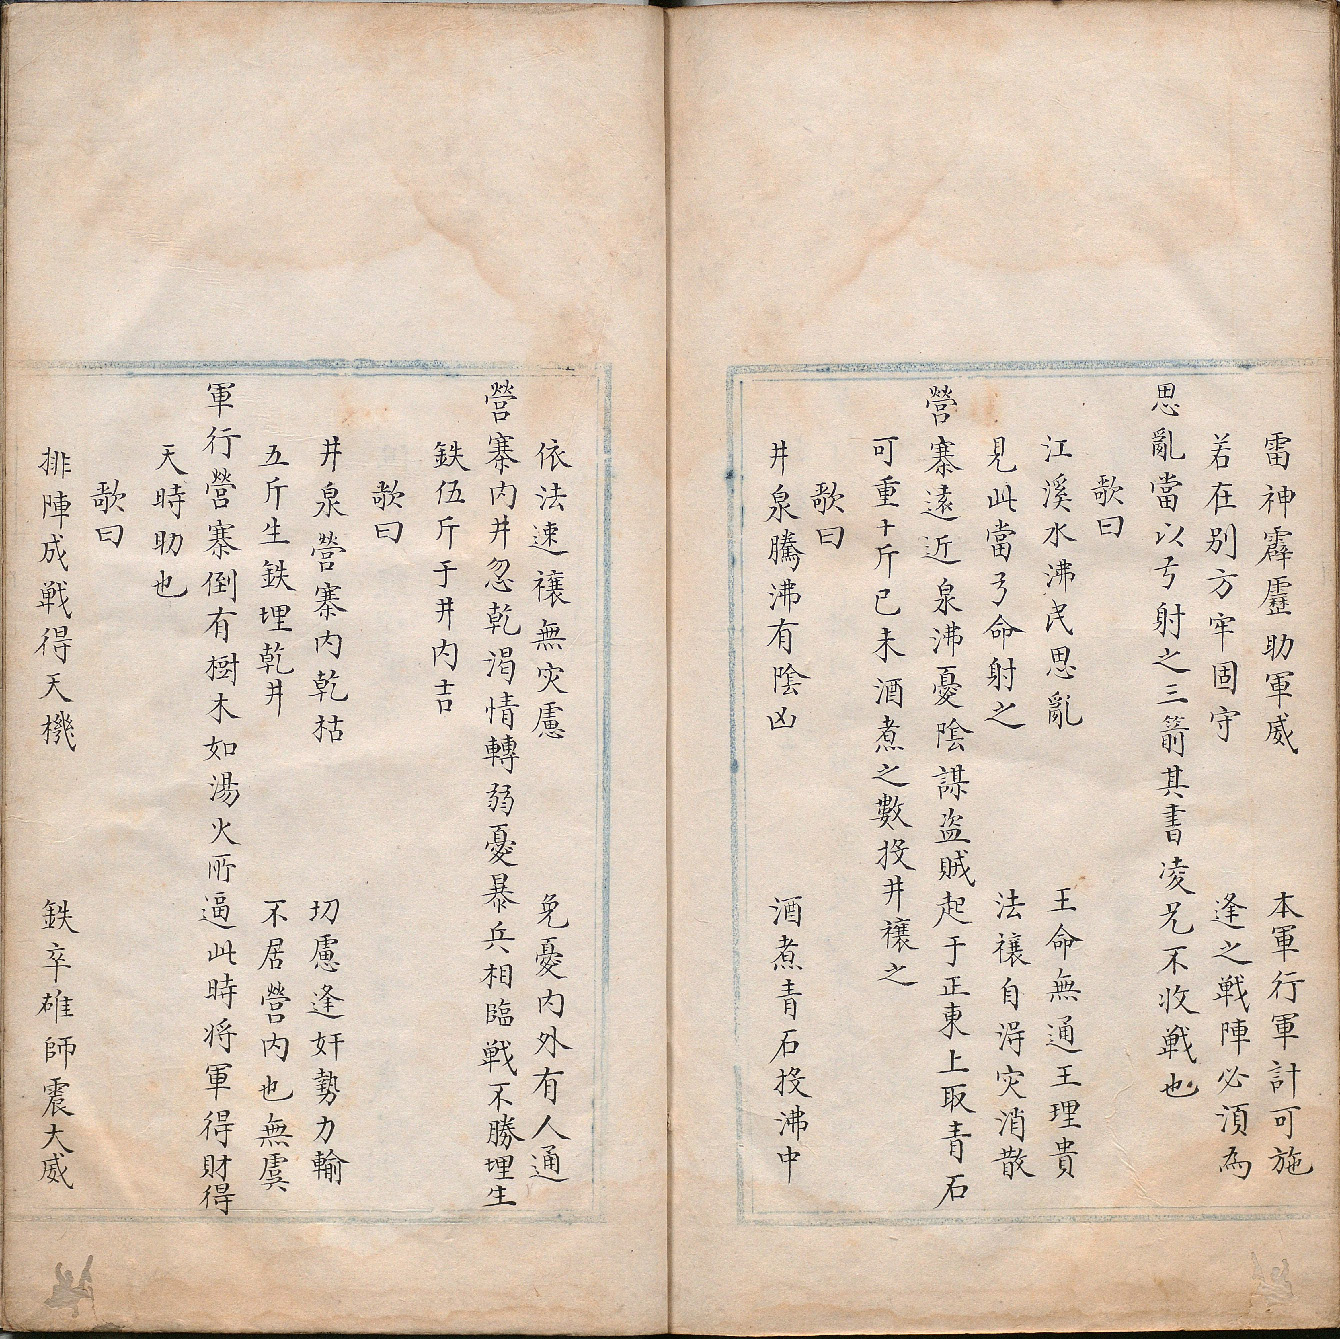 雷神霹靂助軍威　本軍行軍計可施
若在别方牢固守　逢之戦陣必須為
思亂當以弓射之三箭其書凌兄不收戦也
歌曰
江溪水沸民思亂　王命無通王理貴
見此當弓命射之　法禳自淂灾消散
營寨遠近泉沸憂陰謀盗賊起于正東上取青石
可重十斤已未酒煮之數投井禳之
歌曰
井泉騰沸有陰凶　酒煮青石投沸中
依法速禳無灾慮　免憂内外有人通
營寨内井忽乾渴情轉弱憂暴兵相臨戦不勝埋生
鉄伍斤于井内吉
歌曰
井泉營寨内乾枯　切慮逢奸勢力輸
五斤生鉄埋乾井　不居營内也無虞
軍行營寨倒有樹木如湯火所逼此時将軍得財得
天時助也
歌曰
排陣成戦得天機　鉄卒雄師震大威